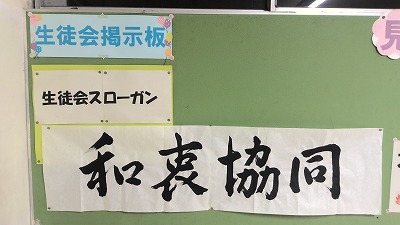 生徒会掲示板
見
生徒会スローガン
和衷協同